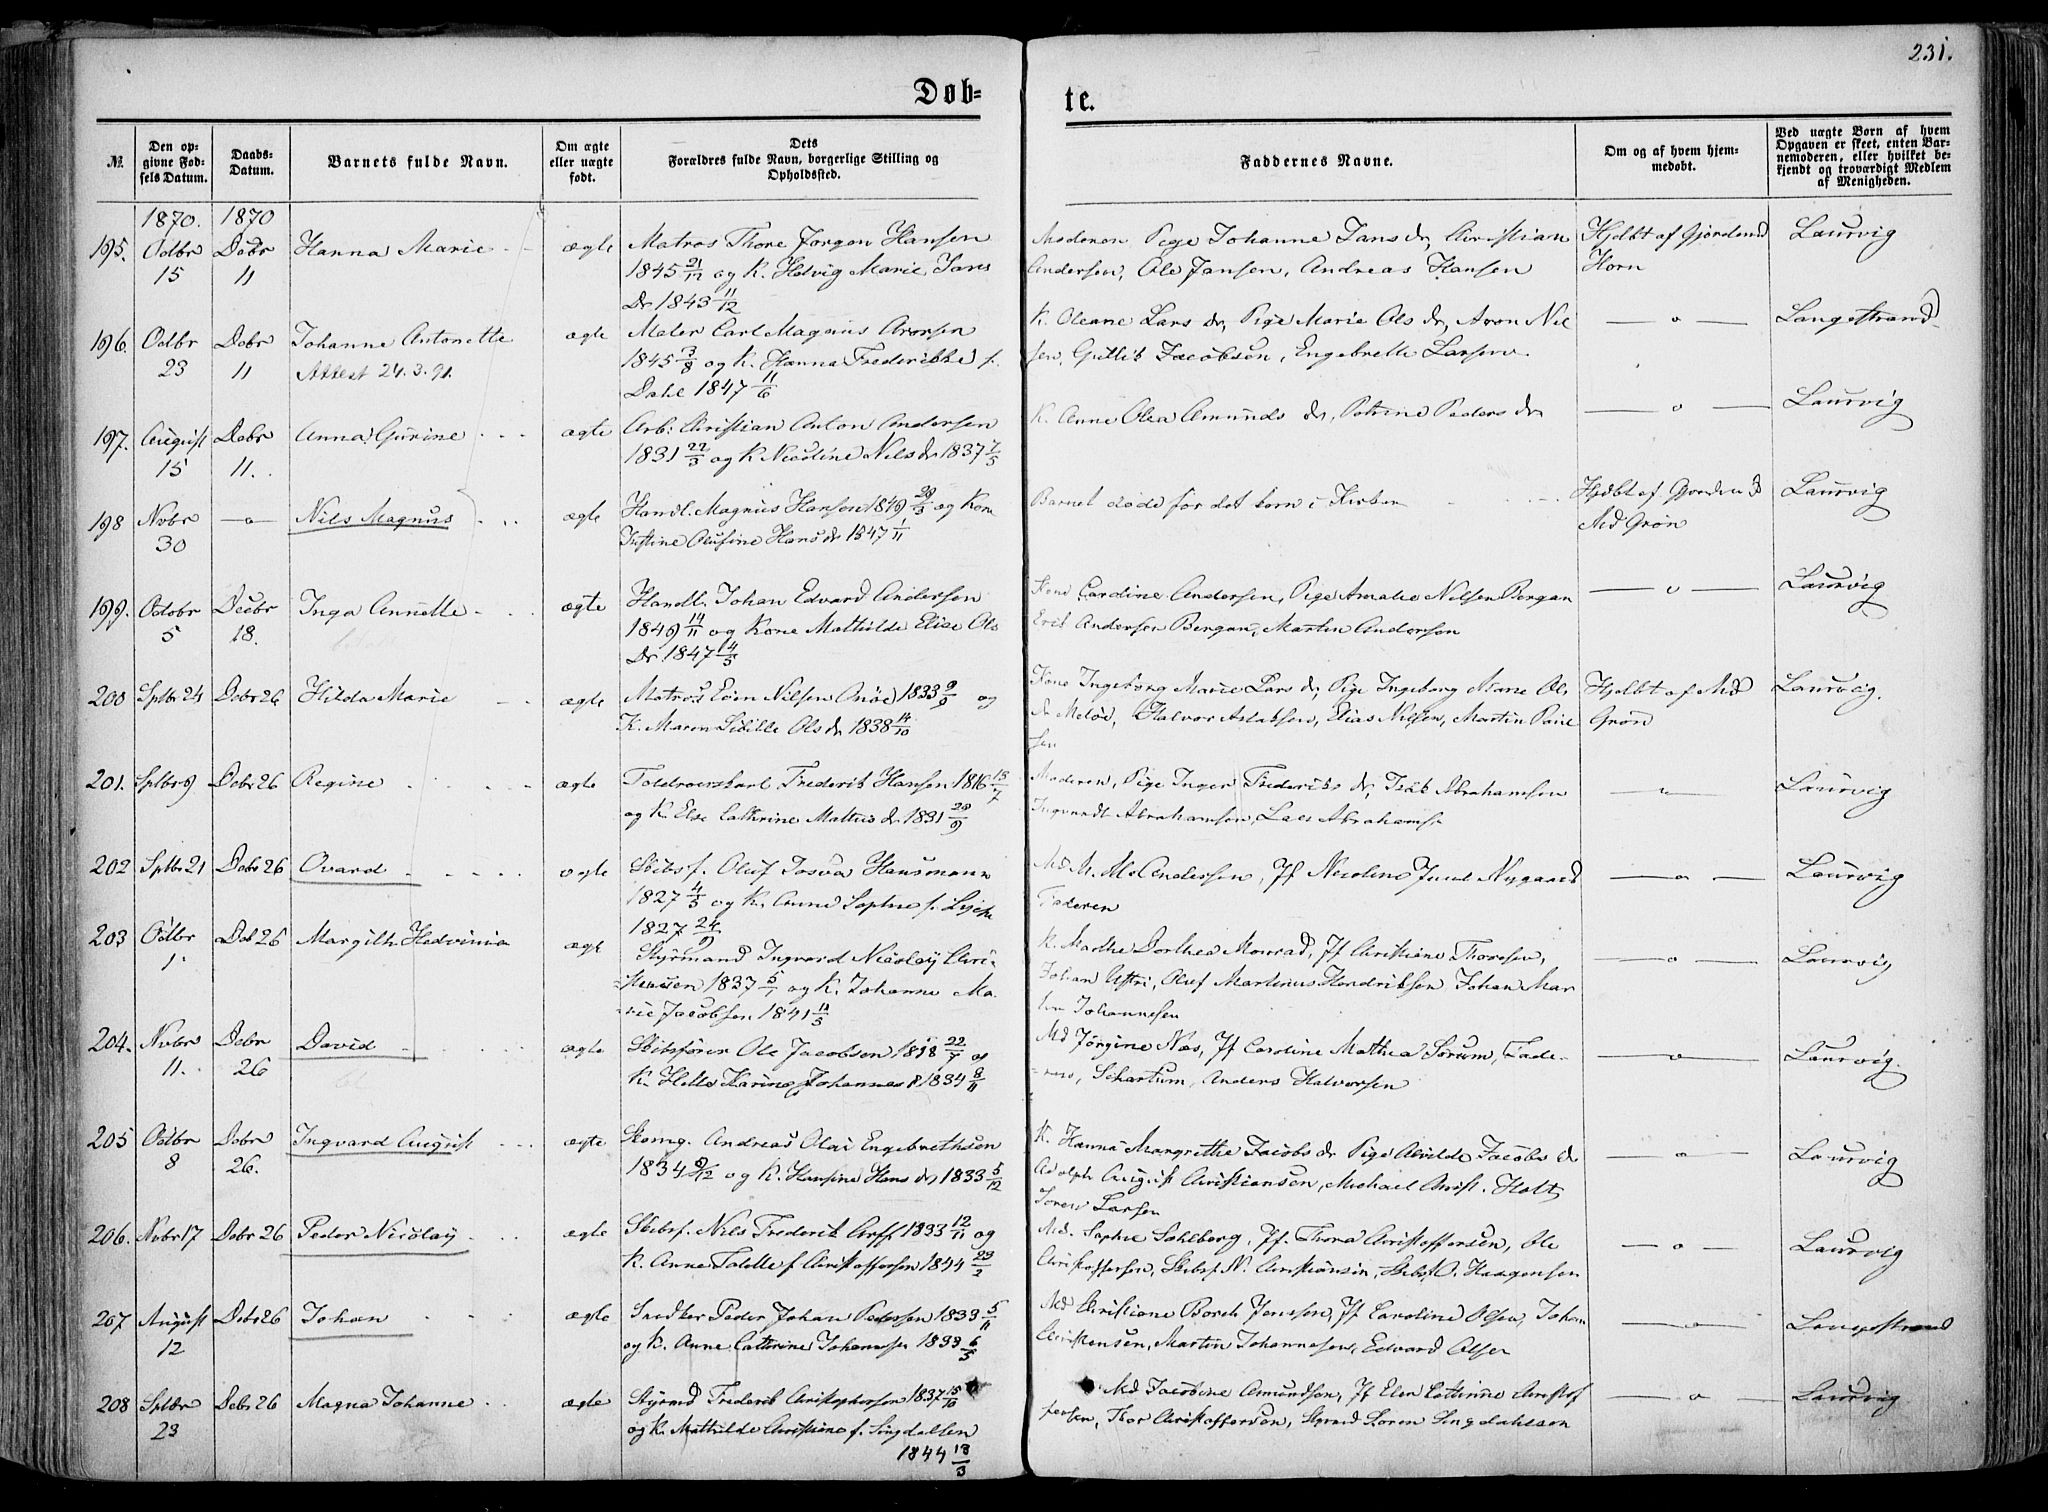 231.
Døb=
te.
№.
Den op-
givne Fød-
sels Datum.
Daabs-
Datum.
Barnets fulde Navn.
Om ægte
eller uægte
født.
Dets
Forældres fulde Navn, borgerlige Stilling og
Opholdssted.
Faddernes Navne.
Om og af hvem hjem-
medøbt.
Ved uægte Børn af hvem
Opgaven er skeet, enten Bar-
nemoderen, eller hvilket be-
kjendt og troværdigt Medlem
af Menigheden.
1870. 1870
195. Octbr 15 Decbr 11 Hanna Marie ægte
Matros Thore Jørgen Hansen
1845 21/12 og K. Helvig Marie Jans
Dr 1843 11/12
Moderen, Pige Johanne Jans dr, Christian
Andersen, Ole Jansen, Andreas Hansen
Hjdbt af Gjordemd
Horn
Laurvig
196. Octbr 23 Decbr 11 Johanne Antonette ægte
Attest 24.3.91.
Maler Carl Magnus Aronsen
1845 3/8 og K. Hanna Frederikke f.
Dahl 1847 11/6
K. Oleane Lars dr, Pige Marie Ols dr, Aron Nil
sen, Gullik Jacobsen, Engebrette Larsen
— o —
Langestrand
197. August 15 Decbr 11. Anna Gurine ægte
Arb. Christian Anton Andersen
1831 22/3 og K Nicoline Nils dr 1837 7/5
K. Anne Olea Amunds dr, Petrine Peders dr
— o —
Laurvig
198 Nvbr 30 — o — Nils Magnus ægte
Handl. Magnus Hansen 1849 og Kone
Justine Olusine Hans dr 1847 1/11
Barnet døde før det kom i Kirken
Hjdbt af
Md Grøn
Laurvig
199. Octobr 5 Decbr 18. Inga Annette ægte
Handl. Johan Edvard Andersen
1849 14/11 og Kone Mathilde Elise Ols
Dr. 1847 14/5
Kone Caroline Andersen, Pige Amalie Nilsen Bergan
Erik Andersen Bergan, Martin Andersen
— o —
Laurvig
200 Sptbr 24 Decbr 26 Hilda Marie ægte
Matros Even Nilsen 1833 9/9 og
K. Maren Sibille Ols dr 1838 14/10
Kone Ingeborg Marie Lars dr, Pige Ingeborg Marie Ols
dr Meløe, Halvor Aslaksen, Elias Nilsen, Martin Paul
sen
Hjdbt af Md
Grøn
Laurvig.
201. Sptbr 9 Decbr 26 Regine ægte
Toldroerskarl Frederik Hansen 1816 13/7
og K. Else Cathrine Mathis dr 1831 28/9
Moderen, Pige Inger Frederiks dr, Isak Abrahamsen
Ingvardt Abrahamsen, Lars Abrahams.
Laurvig
202 Sptbr 21 Decbr 26 Ovard ægte
Skibsf. Oluf Josva Hausmann
1827 4/5 og K. Anne Sophie f.
1827 24/9
Md M. Andersen, Jf Nicoline Juul Nygaard
Faderen
— o —
Laurvig
203 Octbr 1 Decbr 26 Margith Hedvinia ægte
Styrmand Ingvard Nicolay Chri-
stensen 1837 5/1 og K. Johanne Ma-
rie Jacobsen 1841 11/5
K. Marthe Dorthea Monrad, Jf Christiane Thoresen,
Johan, Oluf Martinus Hendriksen Johan Mar
tin Johannesen
— o —
Laurvig
204. Nvbr 11. Decbr 26 David ægte
Skibsfører Ole Jacobsen 1818 22/7 og
K. Helle Karine Johannes d 1834 8/11
Md Jørgine Næs, Jf Caroline Mathea Sørum, Fade-
ren, Schartum, Anders Halvorsen
— o —
Laurvig.
205 Octbr 8 Decbr 26. Ingvard August ægte
Skomg. Andreas Olai Engebrethsen
1834 9/12 og K. Hansine Hans dr 1833 5/12
K. Hanna Margrethe Jacobs dr Pige Alvilde Jacobs dr
Adolph August Christiansen, Michael Christ. Holt,
Søren Larsen
— o —
Laurvig
206. Nvbr 17 Decbr 26 Peder Nicolay ægte
Skibsf. Nils Frederik Arff 1833 12/11 og
K. Anne Tolette f Christoffersen 1844 23/2
Md. Sophie Sohlberg, Jf. Thora Christoffersen, Ole
Christoffersen, Skibsf N. Christiansen, Skibsf O. Haagensen
— o —
Laurvig
207 August 12 Decbr 26 Johan ægte
Snedker Peder Johan Pedersen 1833 5/11
og K. Anne Cathrine Johannesen 1833 6/5
Md Christiane Borch Jenssen, Jf Caroline Olsen, Johan
Christensen, Martin Johannesen, Edvard Olsen
— o —
Langestrand
208 Sptbr 23 Decbr 26 Magna Johanne ægte
Styrmd Frederik Christophersen 1837 15/10
og K. Mathilde Christiane f. Singdalsen
1844 18/3
Md Jacobine Amundsen, Jf Elen Cathrine Christof
fersen, Thor Christoffersen, Styrmd Søren Singdahlsen
— o —
Laurvig